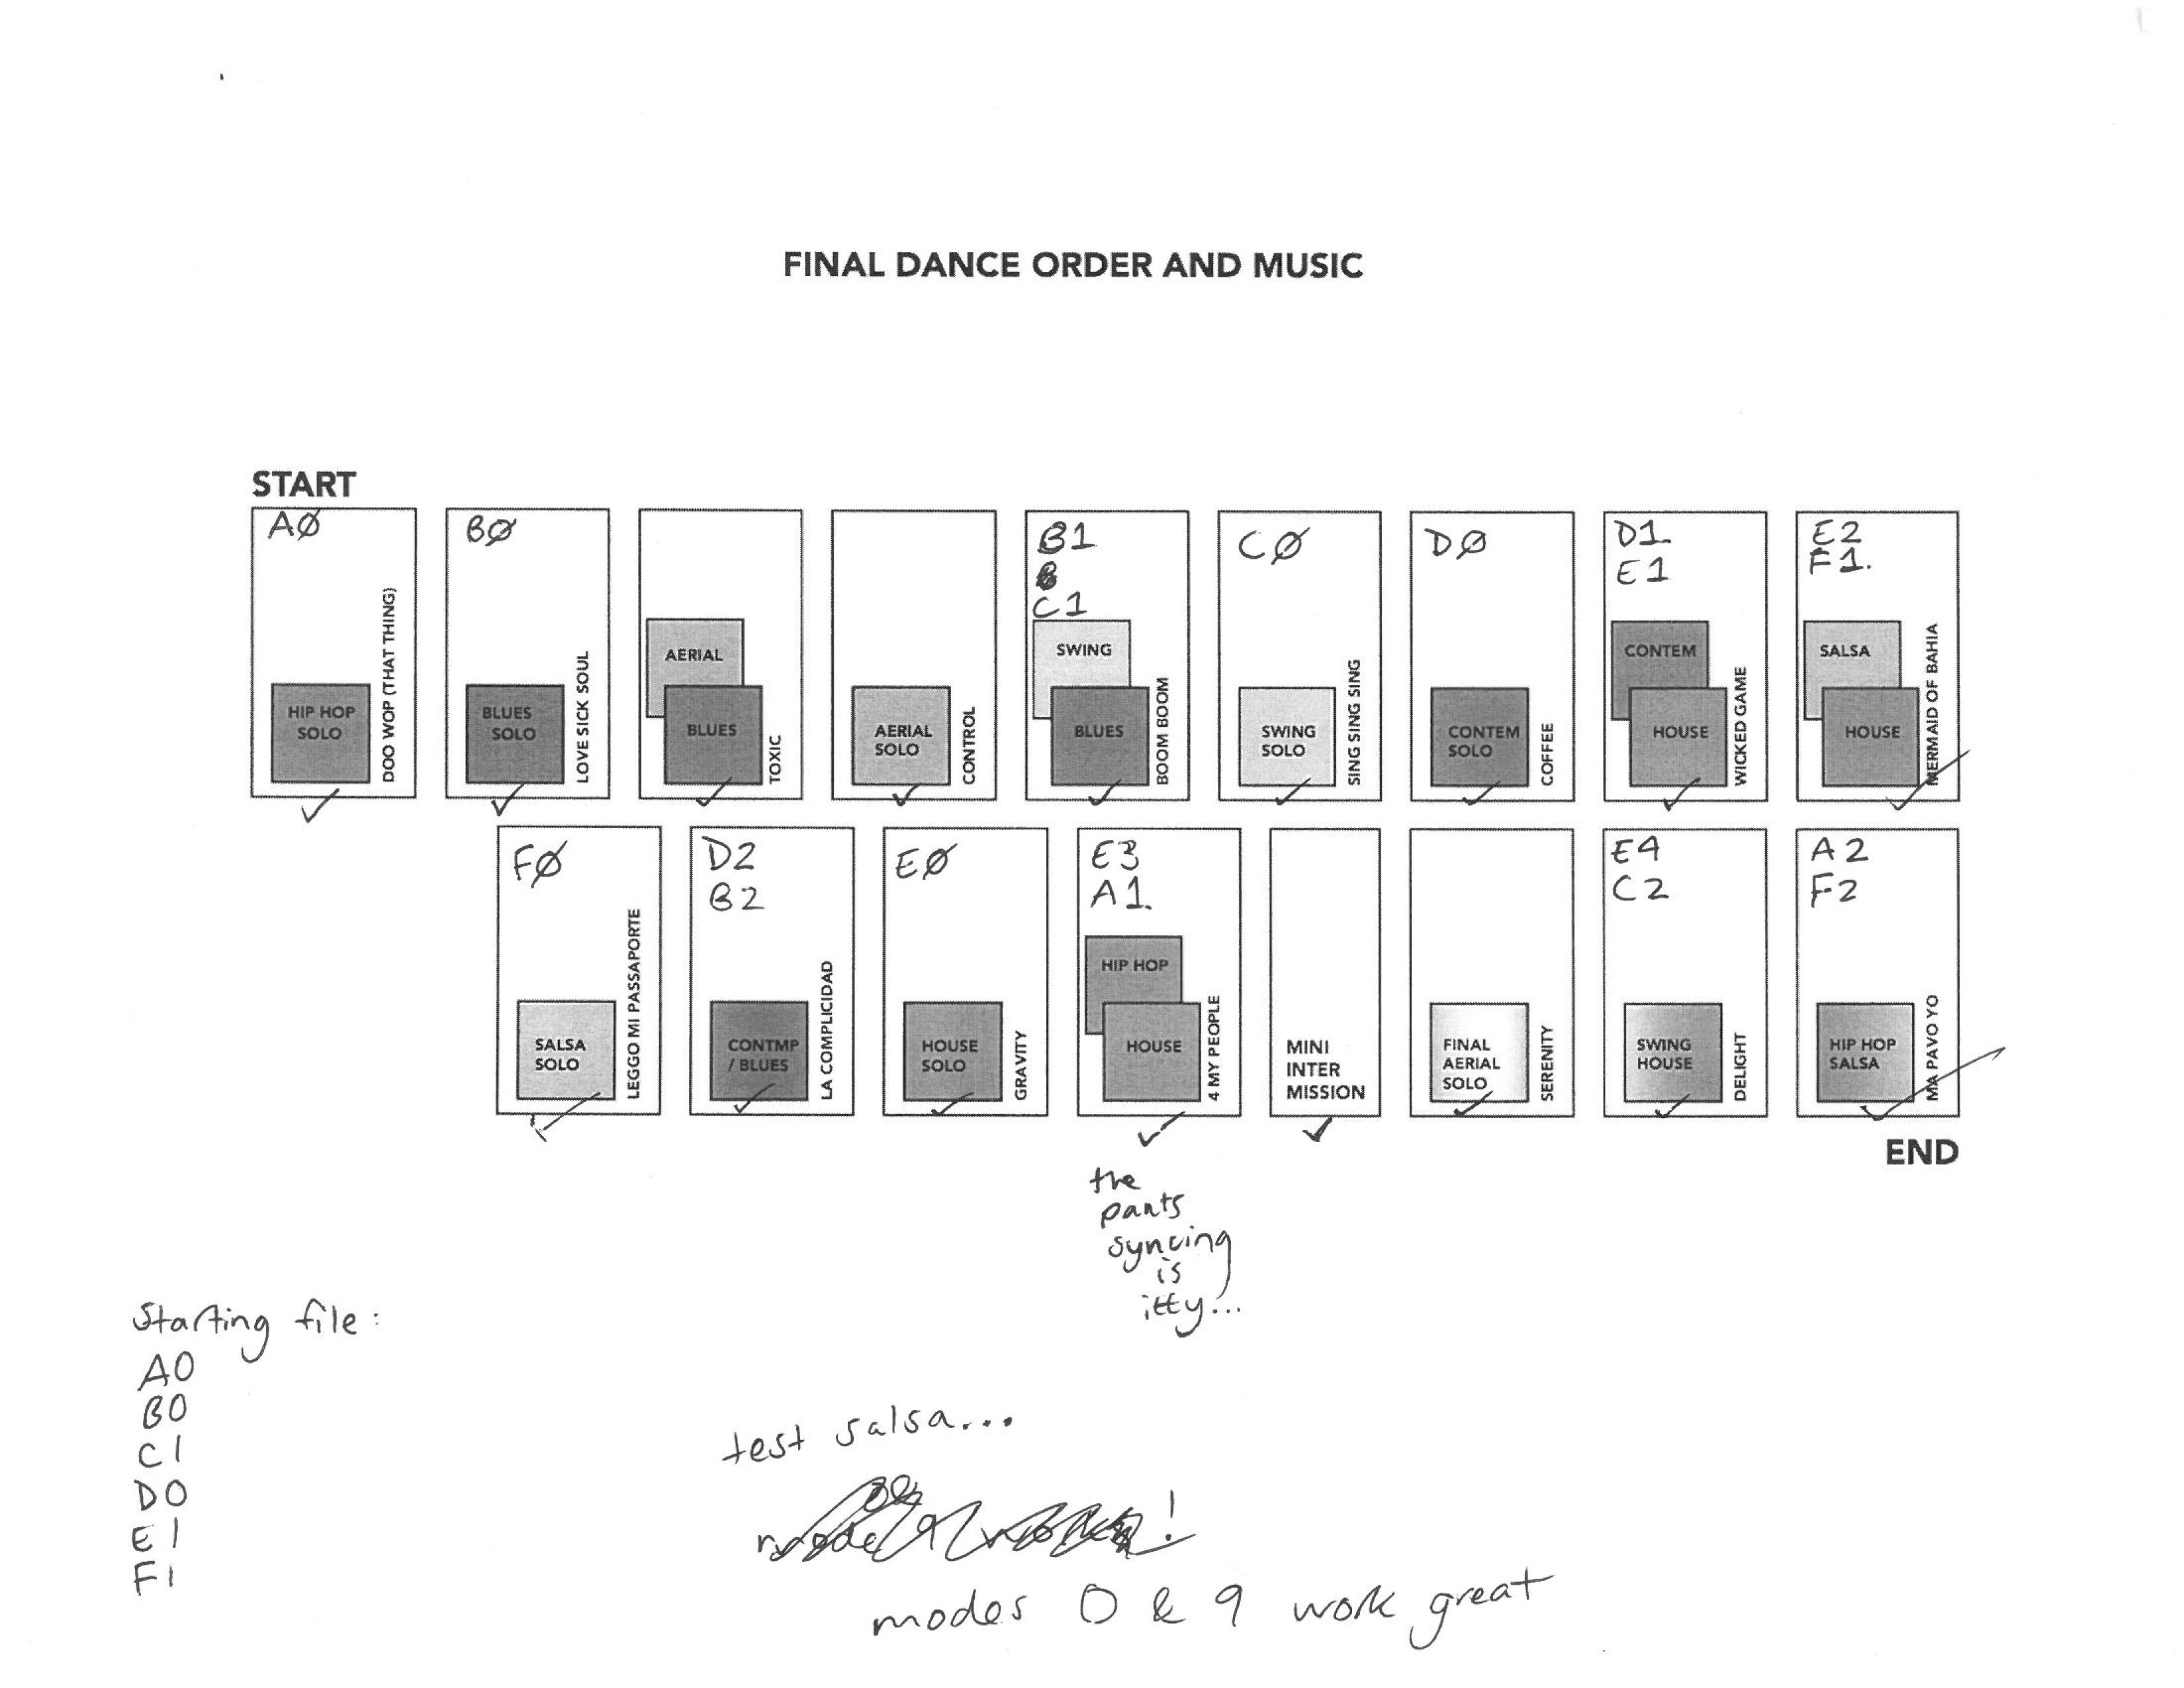 FINAL DANCE ORDER AND MUSIC
START
AØ
HIP HOP
SOLO
DOO WOP (THAT THING)
BØ
BLUES
SOLO
LOVE SICK SOUL
AERIAL
BLUES
TOXIC
AERIAL
SOLO
CONTROL
B1
C1
SWING
BLUES
BOOM BOOM
CØ
SWING
SOLO
SING SING SING
DØ
CONTEM
SOLO
COFFEE
D1
E1
CONTEM
HOUSE
WICKED GAME
E2
F1.
SALSA
HOUSE
MERMAID OF BAHIA
FØ
SALSA
SOLO
LEGGO MI PASSAPORTE
D2
B2
CONTMP
/ BLUES
LA COMPLICIDAD
EØ
HOUSE
SOLO
GRAVITY
E3
A1.
HIP HOP
HOUSE
4 MY PEOPLE
MINI
INTER
MISSION
FINAL
AERIAL
SOLO
SERENITY
E4
C2
SWING
HOUSE
DELIGHT
A2
F2
HIP HOP
SALSA
MA PAVO YO
END
the
pants
syncing
is
itty...
Starting file:
A0
B0
C1
D0
E1
F1
test salsa...
modes 0 & 9 work great